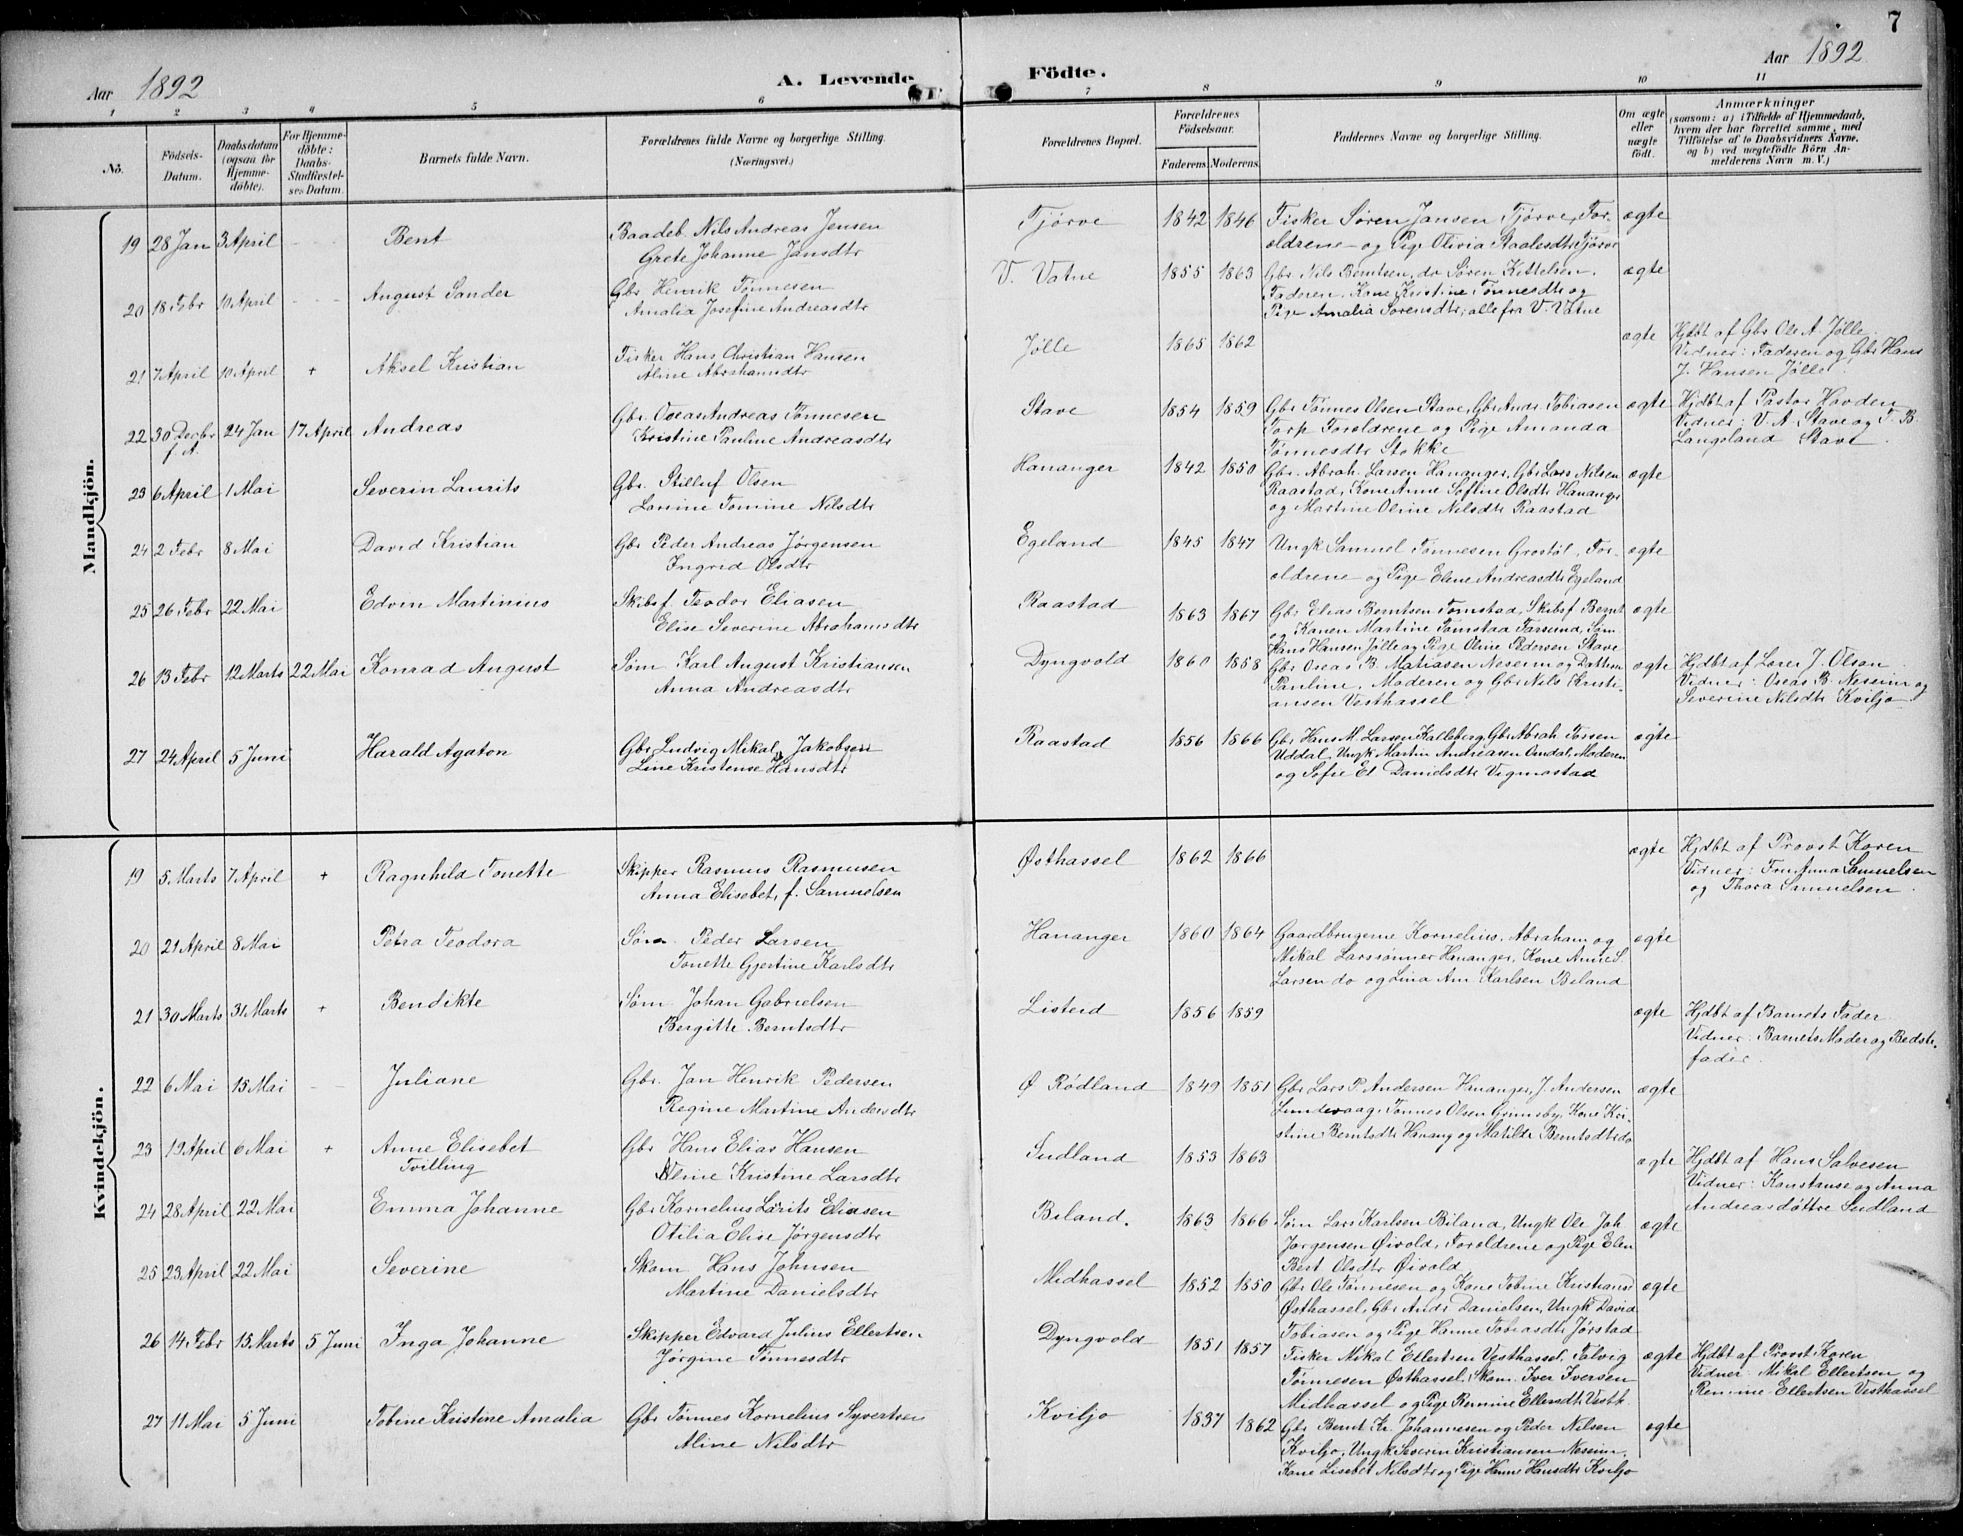 7
Aar 1892
A. Levende
Födte.
Aar 1892
1 2 3 4 5 6 7 8 9 10 11
No.
Födsels-Datum.
Daabsdatum (ogsaa for Hjemme-döbte).
For Hjemme-döbte: Daabs-Stadfæstel-ses Datum.
Barnets fulde Navn.
Forældrenes fulde Navne og borgerlige Stilling.
(Næringsvei.)
Forældrenes Bopæl.
Forældrenes Födselsaar.
Faderens. Moderens.
Faddernes Navne og borgerlige Stilling.
Om ægte eller uægte födt.
Anmærkninger
(saasom: a) i Tilfælde af Hjemmedaab, hvem der har forrettet samme, med Tilföielse af to Daabsvidners Navne, og b) ved uægtefödte Börn An-melderens Navn m. V.)
Mandkjön.
19 28 Jan 3 April Bent
Baadeb Nils Andreas Jensen
Grete Johanne Jansdtr
Tjørve 1842 1846
Fisker Søren Jansen Tjørve, For-
ældrene og Pige Olivia Staalesdtr Tjørve
ægte
20 18 Febr 10 April August Sander
Gbr Henrik Tønnesen
Amalia Josefine Andreasdtr
V. Vatne 1855 1863
Gbr. Nils Berntsen, do Søren Kittelsen,
Faderen, Kone Kristine Tønnesdtr og
Pige Amalia Sørensdtr, alle fra V. Vatne
ægte
21 7 April 10 April + Aksel Kristian
Fisker Hans Christian Hansen
Aline Abrahamsdtr
Jølle 1865 1862
ægte
Hjdbt af Gbr Ole A. Jølle.
Vidner: Faderen og Gbr Hans
J. Hansen Jølle.
22 30 Decbr f. A. 24 Jan 17 April Andreas
Gbr. Oseas Andreas Tønnesen
Kristine Pauline Andreasdtr
Stave 1854 1859
Gbr Tønnes Olsen Stave, Gbr Andr. Tobiasen
Torp Forældrene og Pige Amanda
Tønnesdtr Stokke
ægte
Hjdbt af Pastor Hovden
Vidner: V. A. Stave og T. B.
Langeland Stave.
23 6 April 1 Mai Severin Laurits
Gbr. Stilluf Olsen
Lovine Tomine Nilsdtr
Hananger 1842 1850
Gbr. Abrah. Larsen Hananger, Gbr Lars Nilsen
Raastad, Kone Anne Sofine Olsdtr Hananger
og Martine Oline Nilsdtr Raastad
ægte
24 2 Febr 8 Mai David Kristian
Gbr Peder Andreas Jørgensen
Ingrid Olsdtr
Egeland 1845 1847
Ungk Samuel Tønnesen Grostøl, For-
ældrene og Pige Elene Andreasdtr Egeland
ægte
25 26 Febr 22 Mai Edvin Martinius
Skibsf Teodor Eliasen
Elise Severine Abrahamsdtr
Raastad 1863 1867
Gbr Elias Berntsen Tomstad, Skibsf Bernt
og Konen Martine Tomstad Farsund, Søm.
Hans Hansen Jølle og Pige Oline Pedersen Stave
ægte
26 13 Febr 12 Marts 22 Mai Konrad August
Søm Karl August Kristiansen
Anna Andreasdtr
Dyngvold 1860 1858
Gbr Oseas B. Matiasen Neseim og Datteren
Pauline, Moderen og Gbr Nils Kristi-
ansen Vesthassel
ægte
Hjdbt af Lærer J. Olsen.
Vidner: Oseas B. Neseim og
Severine Nilsdtr Kviljo.
27 24 April 5 Juni Harald Agaton
Gbr Ludvig Mikal Jakobsen
Line Kristense Hansdtr
Raastad 1856 1866
Gbr Hans M. Larsen Kalleberg, Gbr Abrah Torsen
Uddal, Ungk Martin Andreasen Omdal, Moderen
og Sofie El. Danielsdtr Vigmostad
ægte
Kvindekjön.
19 5 Marts 7 April + Ragnhild Tonette
Skipper Rasmus Rasmusen
Anna Elisebet, f. Samuelsen
Østhassel 1862 1866
ægte
Hjdbt af Provst Koren
Vidner: Anna Samuelsen
og Thora Samuelsen.
20 21 April 8 Mai Petra Teodora
Søm. Peder Larsen
Tonette Gjertine Karlsdtr
Hananger 1860 1864
Gaardbrugerne Kornelius, Abraham og
Mikal Larssønner Hananger, Kone Anne S.
Larsen do og Lina Am Karlsen Biland
ægte
21 30 Marts 31 Marts + Bendikte
Søm. Johan Gabrielsen
Bergitte Berntsdtr
Listeid 1856 1859
ægte
Hjdbt af Barnets Fader.
Vidner: Barnets Moder og Bedste-
fader.
22 6 Mai 15 Mai Juliane
Gbr. Jan Henrik Pedersen
Regine Martine Andersdtr
Ø Rødland 1849 1851
Gbr Lars P. Andersen Hananger, J. Andersen
Lundevaag, Tønnes Olsen Grimsby, Kone Kri-
stine Berntsdtr Hanang og Matilde Berntsdtr do
ægte
23 19 April 6 Mai + Anne Elisebet
Tvilling
Gbr Hans Elias Hansen
Aline Kristine Larsdtr
Sudland 1853 1863
ægte
Hjdbt af Hans Salvesen
Vidner: Konstanse og Anna
Andreasdøttre Sudland
24 28 April 22 Mai Emma Johanne
Gbr Kornelius Lorits Eliasen
Otilia Elise Jørgensdtr
Biland. 1863 1866
Søm Lars Karlsen Biland, Ungk Ole Joh
Jørgensen Øivold, Forældrene og Pige Elen
Bert Olsdtr Øivold
ægte
25 23 April 22 Mai Severine
Skom Hans Johnsen
Martine Danielsdtr
Midhassel 1852 1850
Gbr Ole Tønnesen og Kone Tobine Kristiansd
Østhassel, Gbr Andr Danielsen, Ungk David
Tobiasen og Pige Hanne Tobiasdtr Jørstad
ægte
26 14 Febr 15 Marts 5 Juni Inga Johanne
Skipper Edvard Julius Ellertsen
Jørgine Tønnesdtr
Dyngvold 1851 1857
Fisker Mikal Ellertsen Vesthassel, Talvig
Tønnesen Østhassel, Skom. Iver Iversen
Midhassel og Pige Remine Ellersdtr Vesth.
ægte
Hjdbt af Provst Koren
Vidner: Mikal Ellertsen og
Remine Ellertsen Vesthassel
27 11 Mai 5 Juni Tobine Kristine Amalia
Gbr Tønnes Kornelius Syvertsen
Aline Nilsdtr
Kviljo 1837 1862
Gbr Bernt Kr. Johannesen og Peder Nilsen
Kviljo, Ungk Severin Kristiansen Neseim,
Kone Lisebet Nilsdtr og Pige Hanne Hansdtr Kviljo
ægte